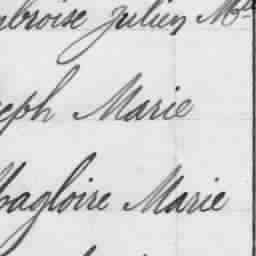 mbroise Julien Mie
seph Marie
Magloire Marie